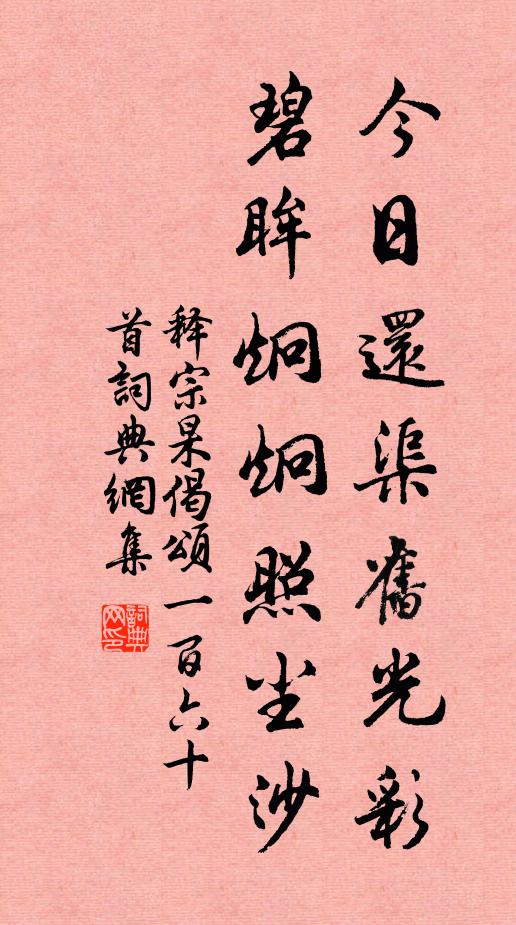 今日還渠舊光彩
碧眸炯炯照尘沙
释宗杲偈頌一百六十
首詞典網集
詞典网印